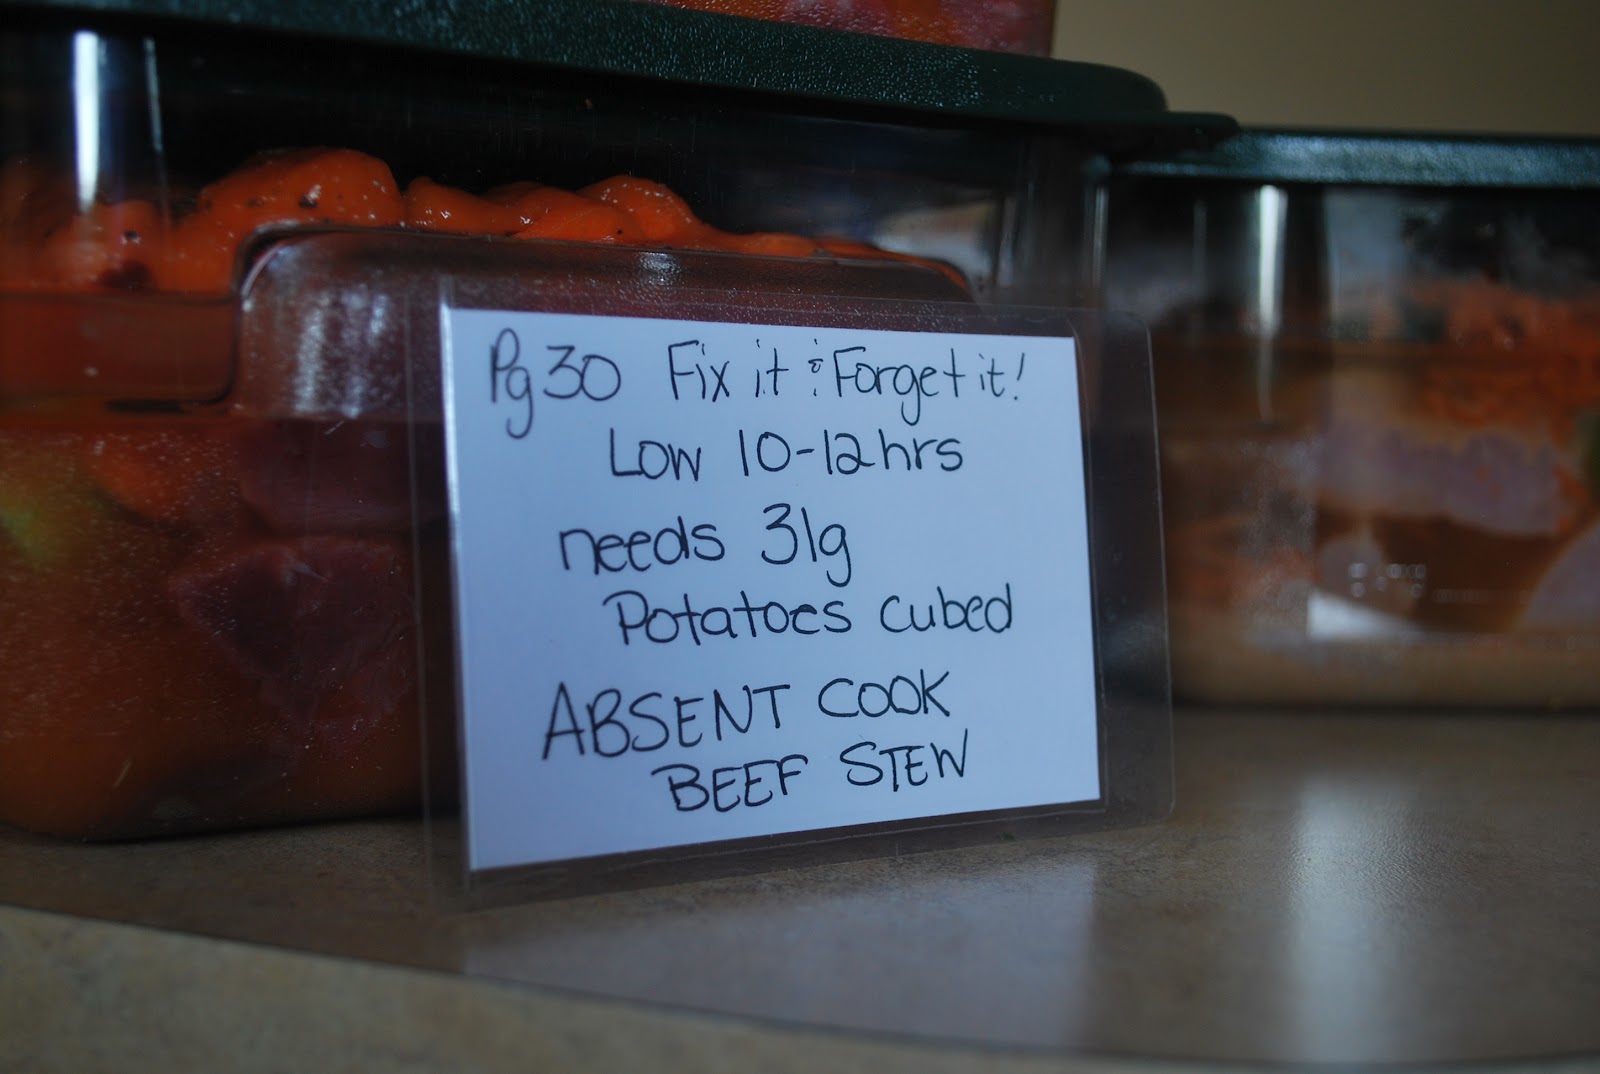 Pg 30 Fix it & Forget it!
Low 10-12 hrs
needs 3 lg
Potatoes cubed
ABSENT COOK
BEEF STEW